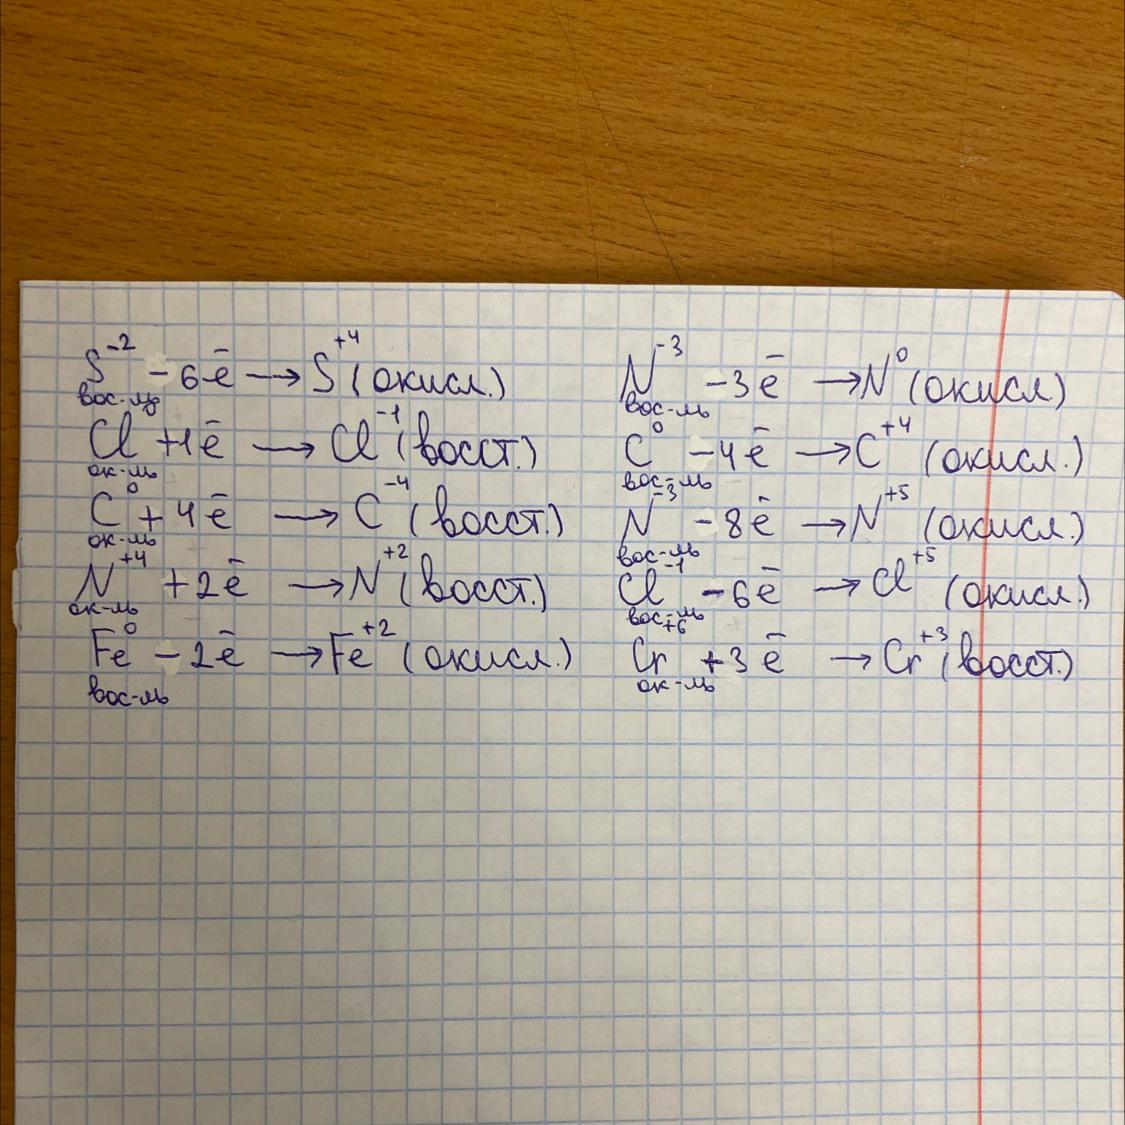 S⁻² - 6ē → S⁺⁴ (окисл.)
вос-ль
Cl + 1ē → Cl⁻¹ (восст.)
ок-ль
C⁰ + 4ē → C⁻⁴ (восст.)
ок-ль
N⁺⁴ + 2ē → N⁺² (восст.)
ок-ль
Fe⁰ - 2ē → Fe⁺² (окисл.)
вос-ль
N⁻³ - 3ē → N⁰ (окисл)
вос-ль
C⁰ - 4ē → C⁺⁴ (окисл.)
вос-ль
N⁻³ - 8ē → N⁺⁵ (окисл.)
вос-ль
Cl⁻¹ - 6ē → Cl⁺⁵ (окисл.)
вос-ль
Cr⁺⁶ + 3ē → Cr⁺³ (восст.)
ок-ль